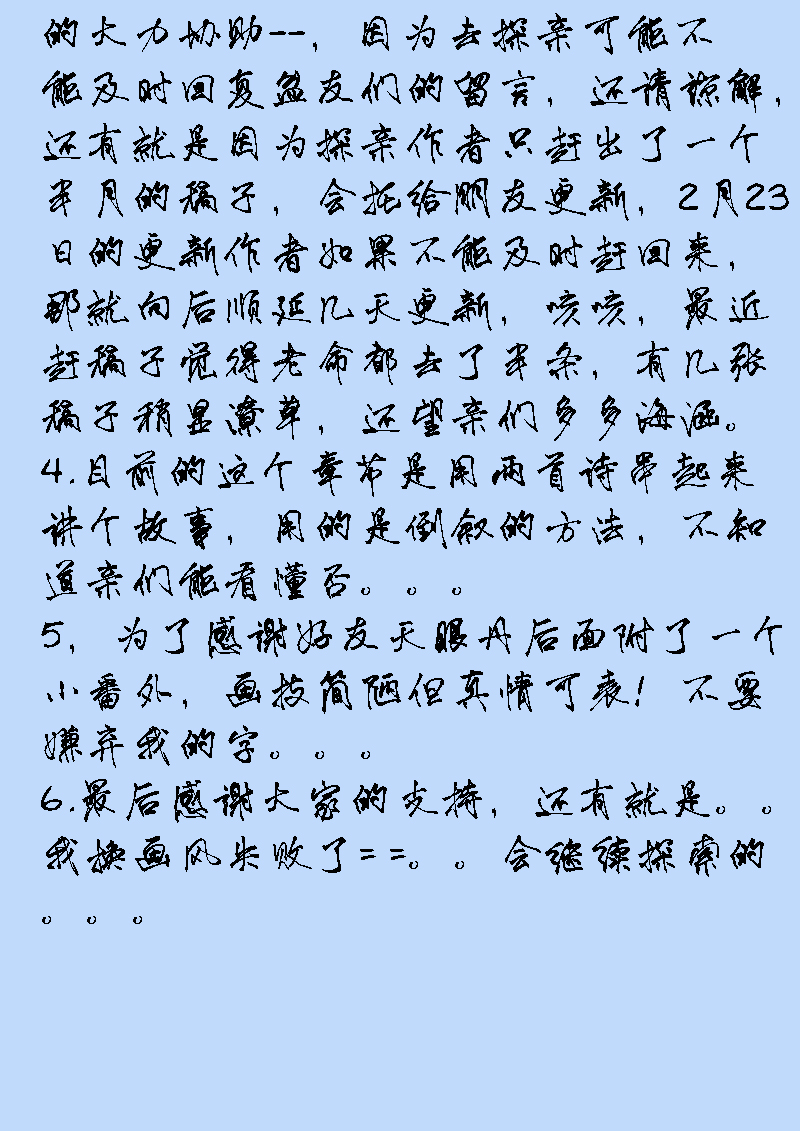 的大力协助--，因为去探亲可能不
能及时回复盆友们的留言，还请谅解，
还有就是因为探亲作者只赶出了一个
半月的稿子，会托给朋友更新，2月23
日的更新作者如果不能及时赶回来，
那就向后顺延几天更新，咳咳，最近
赶稿子觉得老命都去了半条，有几张
稿子稍显潦草，还望亲们多多海涵。
4.目前的这个章节是用两首诗串起来
讲个故事，用的是倒叙的方法，不知
道亲们能看懂否。。。
5，为了感谢好友天眼丹后面附了一个
小番外，画技简陋但真情可表！不要
嫌弃我的字。。。
6.最后感谢大家的支持，还有就是。。
我换画风失败了==。。会继续探索的
。。。